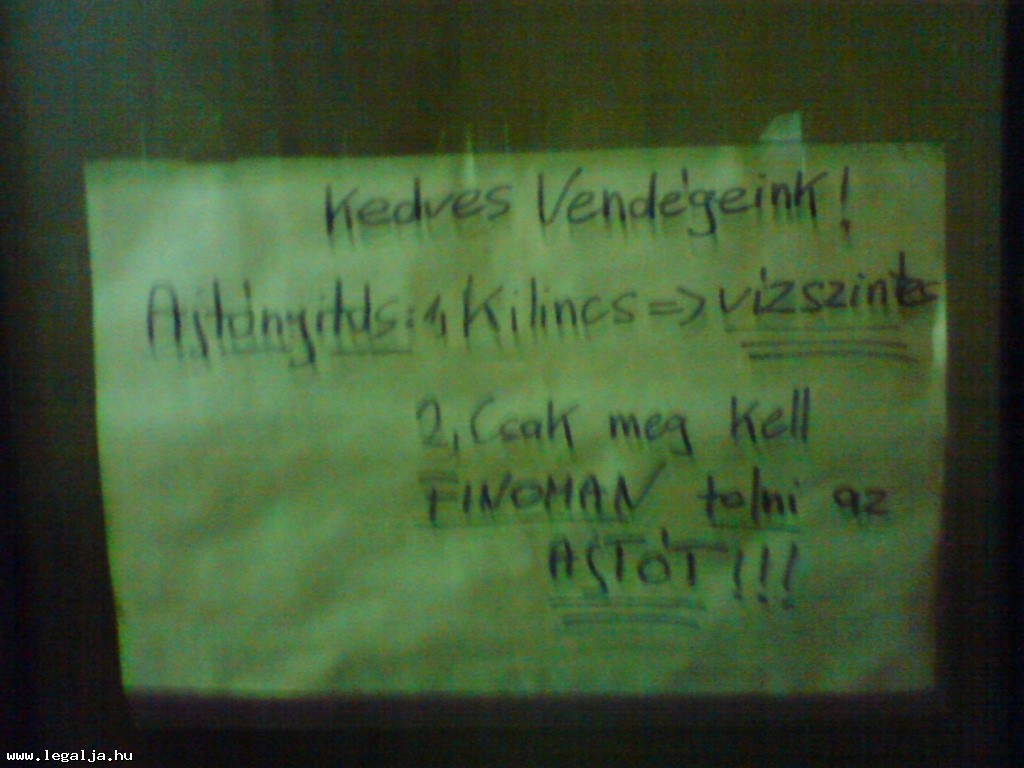 Kedves Vendégeink!
Ajtónyitás: 1, Kilincs => vízszintes
2, Csak meg kell
FINOMAN tolni az
AJTÓT!!!
www.legalja.hu